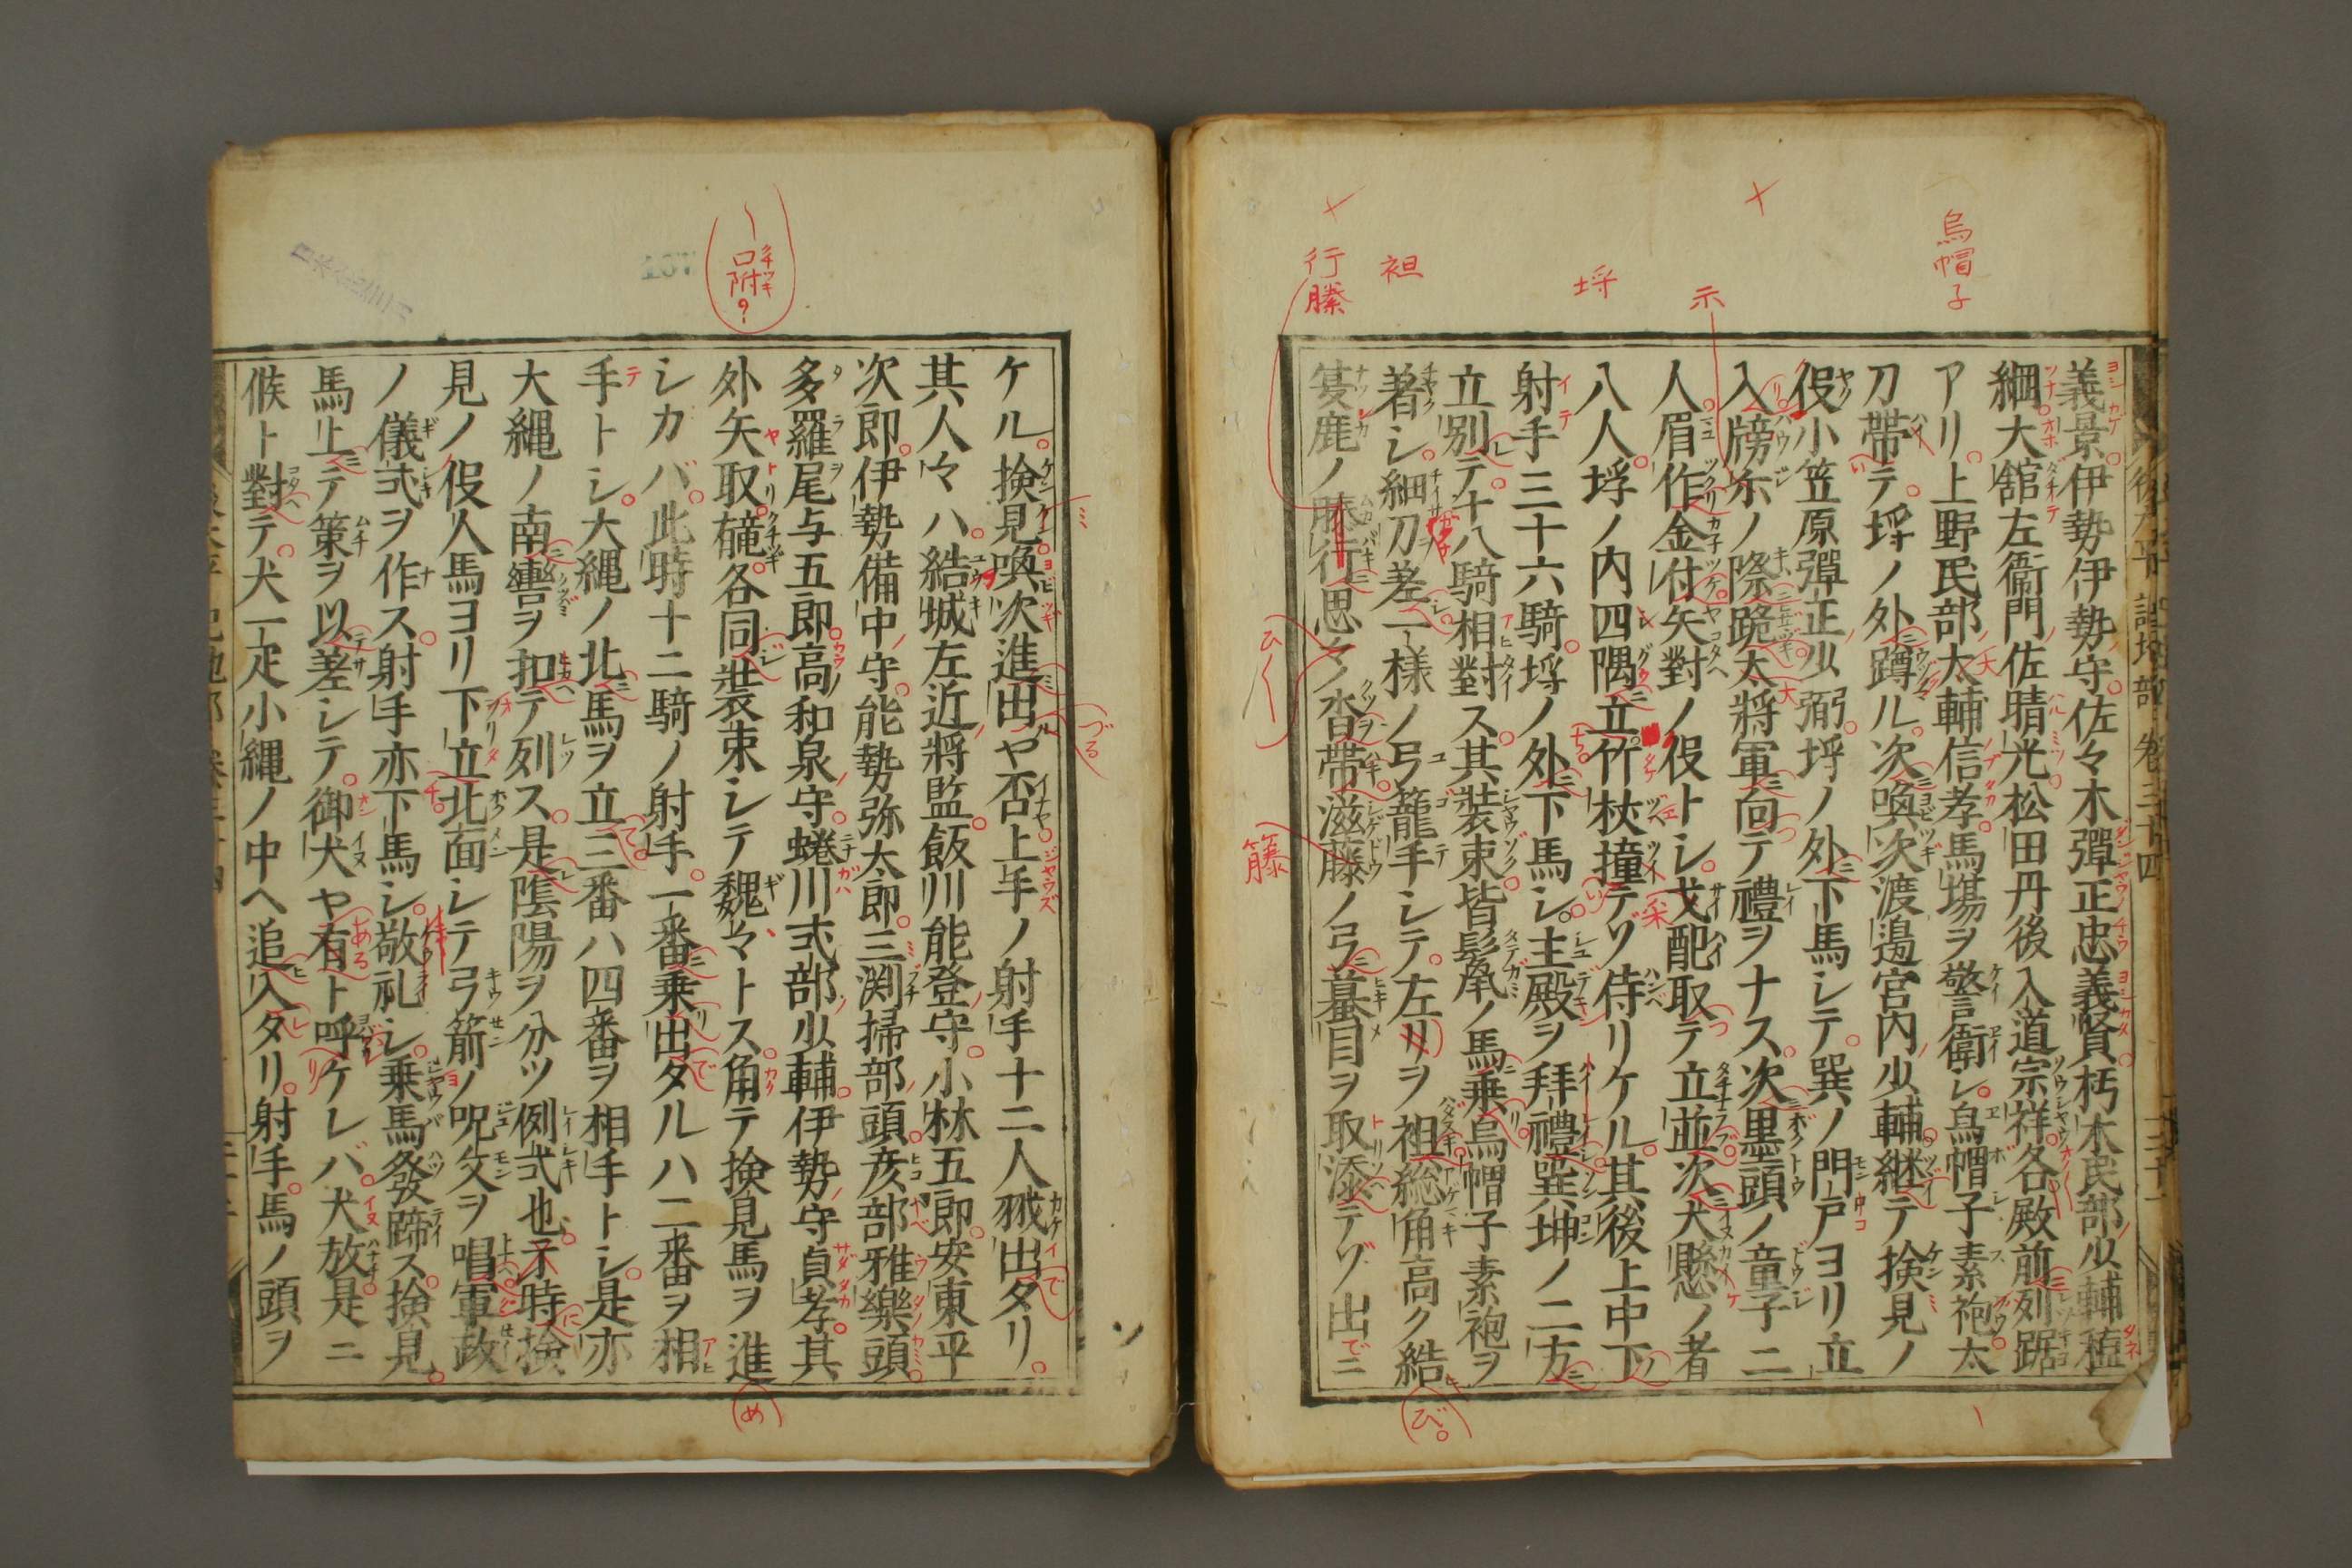 烏帽子
示
埒
袒
行縢
籐
義景伊勢伊勢守佐々木彈正忠義賢朽木民部少輔稙
綱大舘左衞門佐晴光松田丹後入道宗祥各殿前列踞
アリ上野民部太輔信孝馬塲ヲ警衛シ烏帽子素袍太
刀帶テ埒ノ外蹲ル次喚次渡邉宮内少輔継テ検見ノ
役小笠原彈正少弼埒ノ外下馬シテ巽ノ門戸ヨリ立
入牓示ノ際跪太將軍向テ禮ヲナス次墨頭ノ童子二
人眉作金付矢對ノ役トシ戈配取テ立並次犬懸ノ者
八人埒ノ内四隅立竹杖撞テゾ侍リケル其後上中下
射手三十六騎埒ノ外下馬シ主殿ヲ拜禮巽坤ノ二方
立別テ十八騎相對ス其装束皆髪ノ馬乗烏帽子素袍ヲ
著シ細刀差一様ノ弓籠手シテ左リヲ袒総角高ク結
ビ
夏鹿ノ縢行思々ノ沓帶滋藤ノ弓蟇目ヲ取添テゾ出ニ
口附?
クチツキ
ケル検見喚次進出ヤ否上手ノ射手十二人翔出タリ
其人々ハ結城左近將監飯川能登守小林五郎安東平
次郎伊勢備中守能勢弥太郎三渕掃部頭彦部雅樂頭
多羅尾与五郎高和泉守蜷川式部少輔伊勢守貞孝其
外矢取䡴各同装束シテ魏々トス角テ検見馬ヲ進
め
シカバ此時十二騎ノ射手一番乗出タルハ二番ヲ相
手トシ大縄ノ北馬ヲ立三番ハ四番ヲ相手トシ是亦
大縄ノ南轡ヲ扣テ列ス是陰陽ヲ分ツ例式也于時検
見ノ役人馬ヨリ下立北面シテ弓箭ノ呪文ヲ唱軍政
ノ儀式ヲ作ス射手亦下馬シ敬礼シ乗馬發蹄ス検見
馬上テ策ヲ以差シテ御犬ヤ有ト呼ケレバ犬放是ニ
候ト對テ犬一疋小縄ノ中ヘ追入タリ射手馬ノ頭ヲ